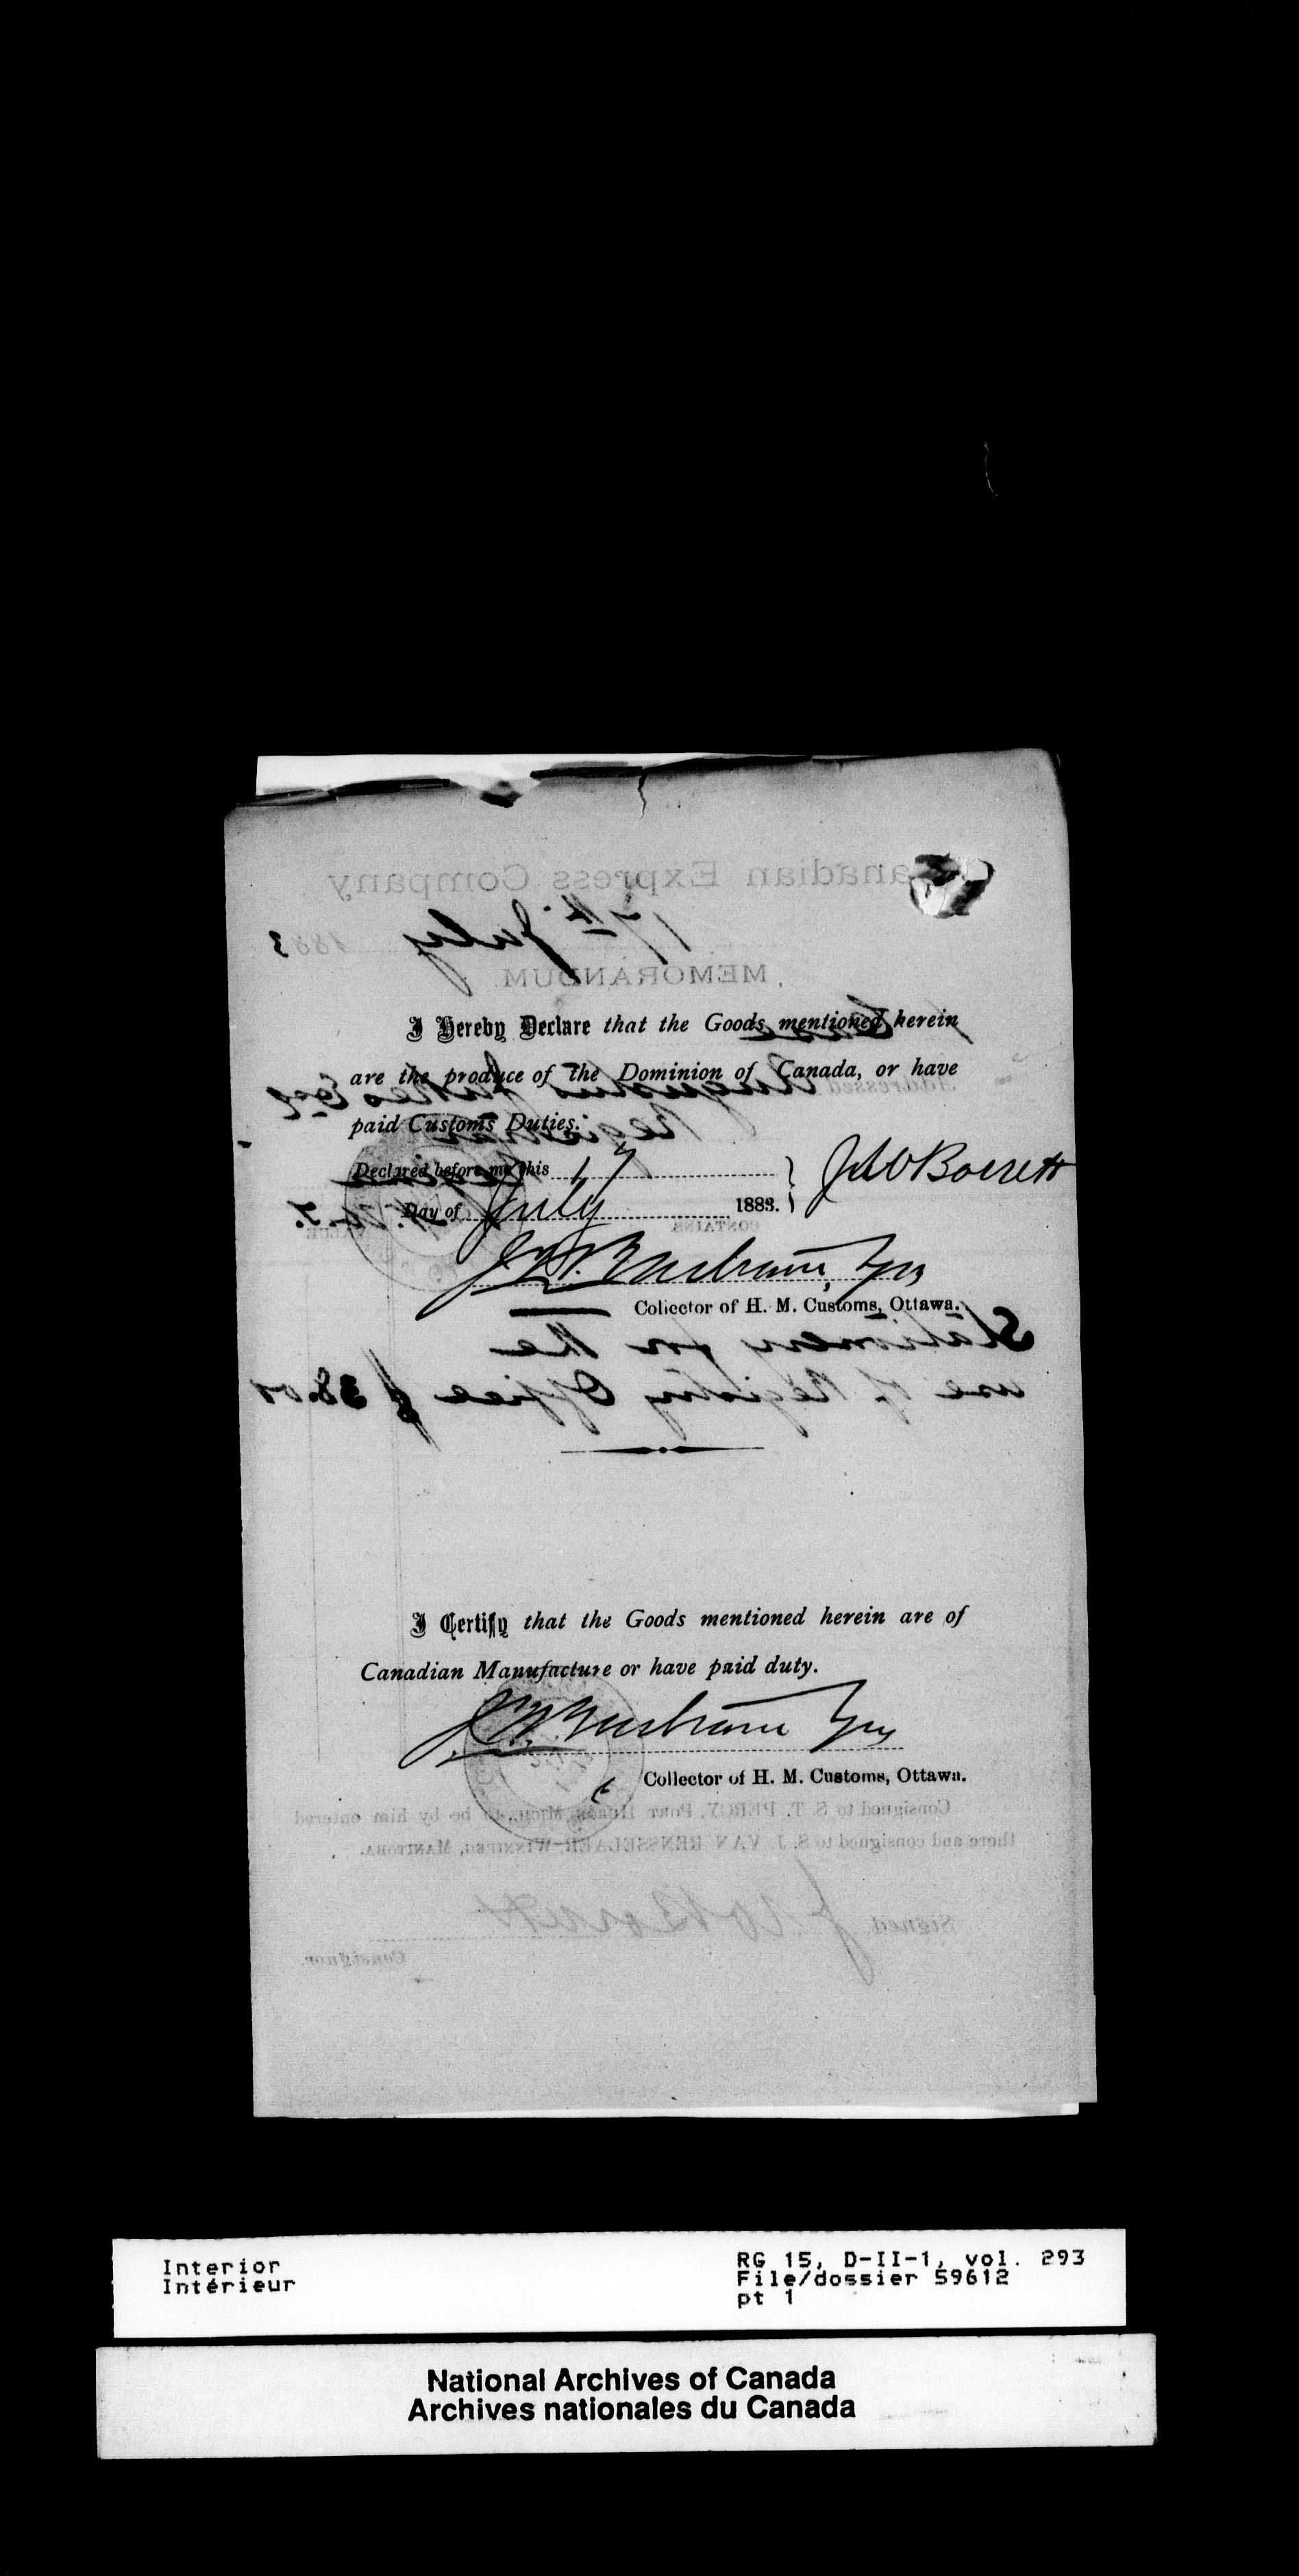 Canadian Express Company
17th July 1883
MEMORANDUM.
I Hereby Declare that the Goods mentioned herein
are the produce of the Dominion of Canada, or have
Addressed Augustus Jukes Esq
paid Customs Duties.
Registrar
Declared before me this 17
Regina
J W Borrett
Day of July 1883.
N.W.T.
CONTAINS VALUE.
Collector of H. M. Customs, Ottawa.
Stationery for the
use of Registry Office $ 38.00
I Certify that the Goods mentioned herein are of
Canadian Manufacture or have paid duty.
Collector of H. M. Customs, Ottawa.
Consigned to S. T. PERCY, PORT HURON, MICH., to be by him entered
there and consigned to S. J. VAN RENSSELAER, WINNIPEG, MANITOBA.
Signed J W Borrett
Consignor.
Interior
Intérieur
RG 15, D-II-1, vol. 293
File/dossier 59612
pt 1
National Archives of Canada
Archives nationales du Canada